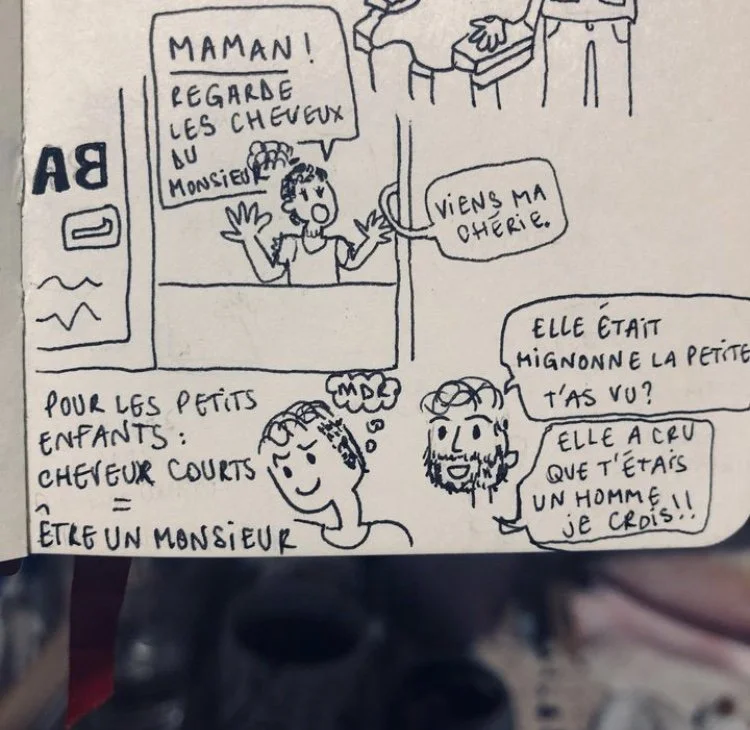 MAMAN !
REGARDE
LES CHEVEUX
DU
MONSIEUR
BA
VIENS MA
CHÉRIE.
ELLE ÉTAIT
MIGNONNE LA PETITE
T'AS VU ?
ELLE A CRU
QUE T'ÉTAIS
UN HOMME
JE CROIS !!
MDR
POUR LES PETITS
ENFANTS :
CHEVEUX COURTS
=
ÊTRE UN MONSIEUR